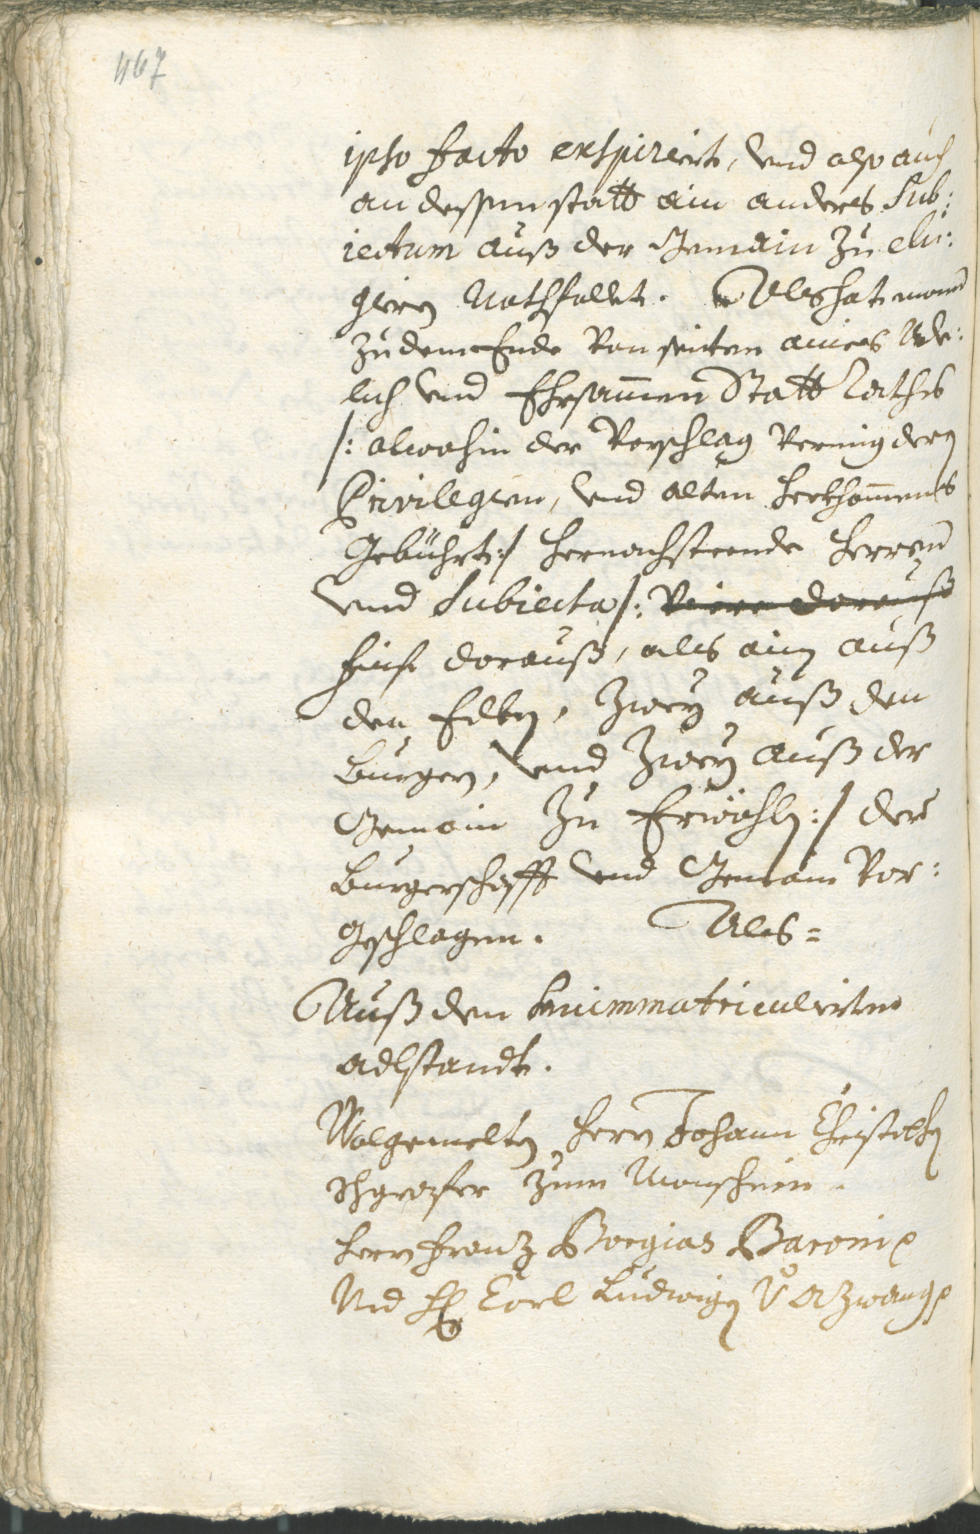 467
ipso facto exspiriert, vnd also auch
an dessen statt ain anders Sub:
iectum auß der Gemain zu eli:
giern Nothfallet. Als hat mann
zu dem Ende von seiten aines Ade:
lich vnd Ehrsammen Statt Raths
/: alwohin der Vorschlag vermig dern
Privilegien, vnd alten herkhommens
Gebührt :/ hernachsteende Herren
vnd Subiecta /: Viere darauß
finfe darauß, als ain auß
den Edlen, Zwey auß den
Burgern, vnd Zwey auß der
Gemain zu Erwöhlen :/ der
Burgerschafft vnd Gemain Vor:
geschlagen. Als =
Auß den immatriculierten
adlstandt.
Wolgemelten Herrn Johann Christophen
zum
Herrn Franz Borgias Baroni
Vnd H: Carl Ludwigen v: